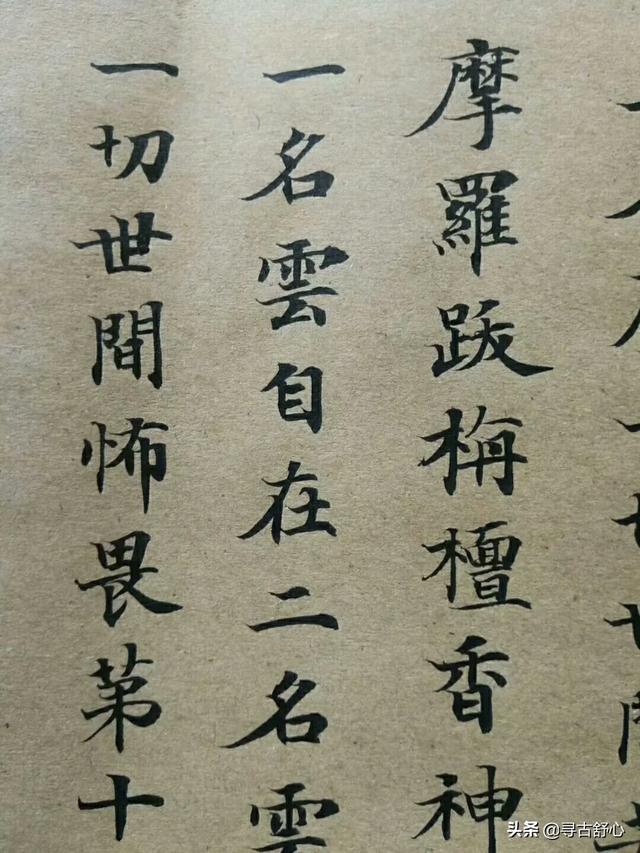 摩羅跋栴檀香神
一名雲自在二名雲
一切世間怖畏苐十
头条 @寻古舒心